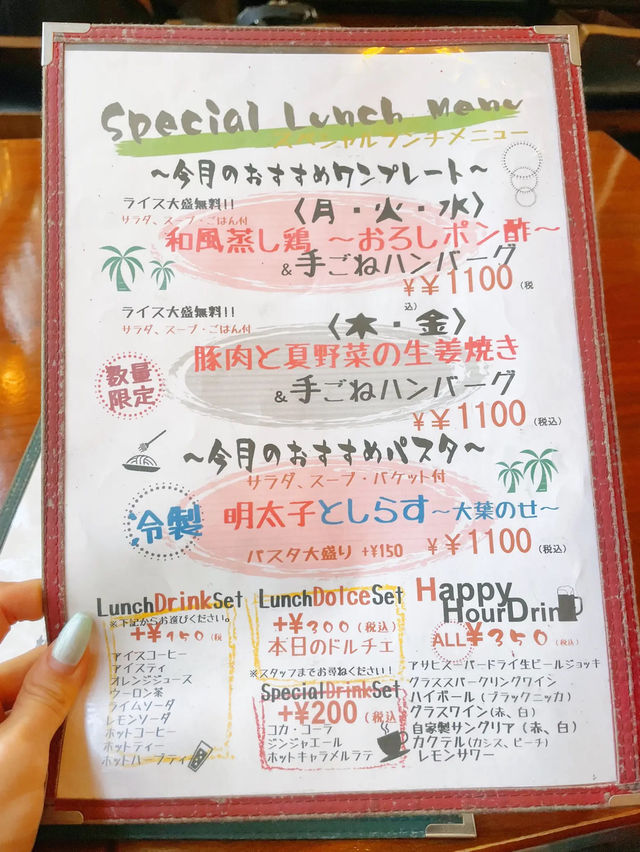 Special Lunch Menu
スペシャルランチメニュー
～今月のおすすめワンプレート～
ライス大盛無料!!
サラダ、スープ・ごはん付
〈月・火・水〉
和風蒸し鶏 ～おろしポン酢～
&手ごねハンバーグ
¥¥1100(税
込)
ライス大盛無料!!
サラダ、スープ・ごはん付
〈木・金〉
数量
限定
豚肉と夏野菜の生姜焼き
&手ごねハンバーグ
¥¥1100(税込)
～今月のおすすめパスタ～
サラダ、スープ・バケット付
冷製 明太子としらす～大葉のせ～
パスタ大盛り +¥150 ¥¥1100(税込)
LunchDrinkSet
※下記からお選びください。
+¥150(税
アイスコーヒー
アイスティ
オレンジジュース
ウーロン茶
ライムソーダ
レモンソーダ
ホットコーヒー
ホットティー
ホットハーブティ
LunchDolceSet
+¥300(税込)
本日のドルチェ
※スタッフまでお尋ねください!
SpecialDrinkSet
+¥200(税込
コカ・コーラ
ジンジャエール
ホットキャラメルラテ
Happy
HourDrin
ALL¥350(税込)
アサヒスーパードライ生ビールジョッキ
グラススパークリングワイン
ハイボール(ブラックニッカ)
グラスワイン(赤、白)
自家製サングリア(赤、白)
カクテル(カシス、ピーチ)
レモンサワー